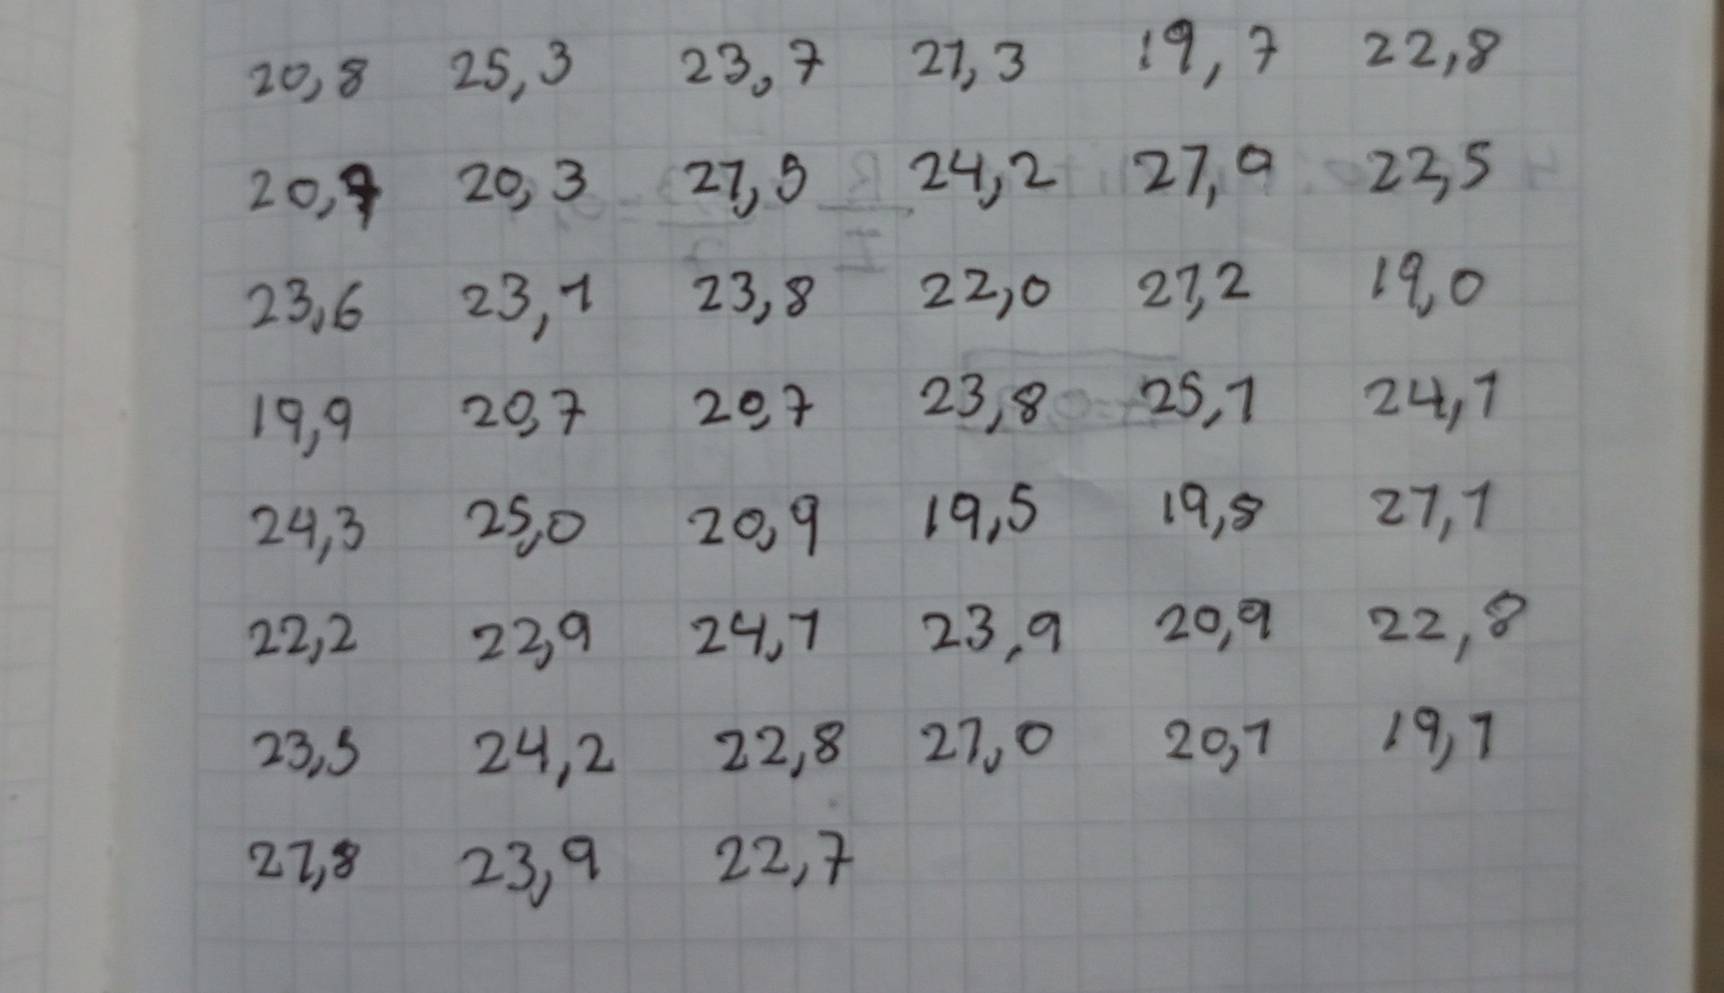 20,8 25,3 23,7 21,3 19,7 22,8
20,3 21,5 24,2 21,9 22,5
23,6 23,1 23,8 22,0 21,2 19,0
19,9 20,7 20,7 23,8 25,1 24,1
24,3 25,0 20,9 19,5 19,8 21,1
22,2 22,9 24,1 23,9 20,9 22,8
23,5 24,2 22,8 21,0 20,1 19,1
21,8 23,9 22,7